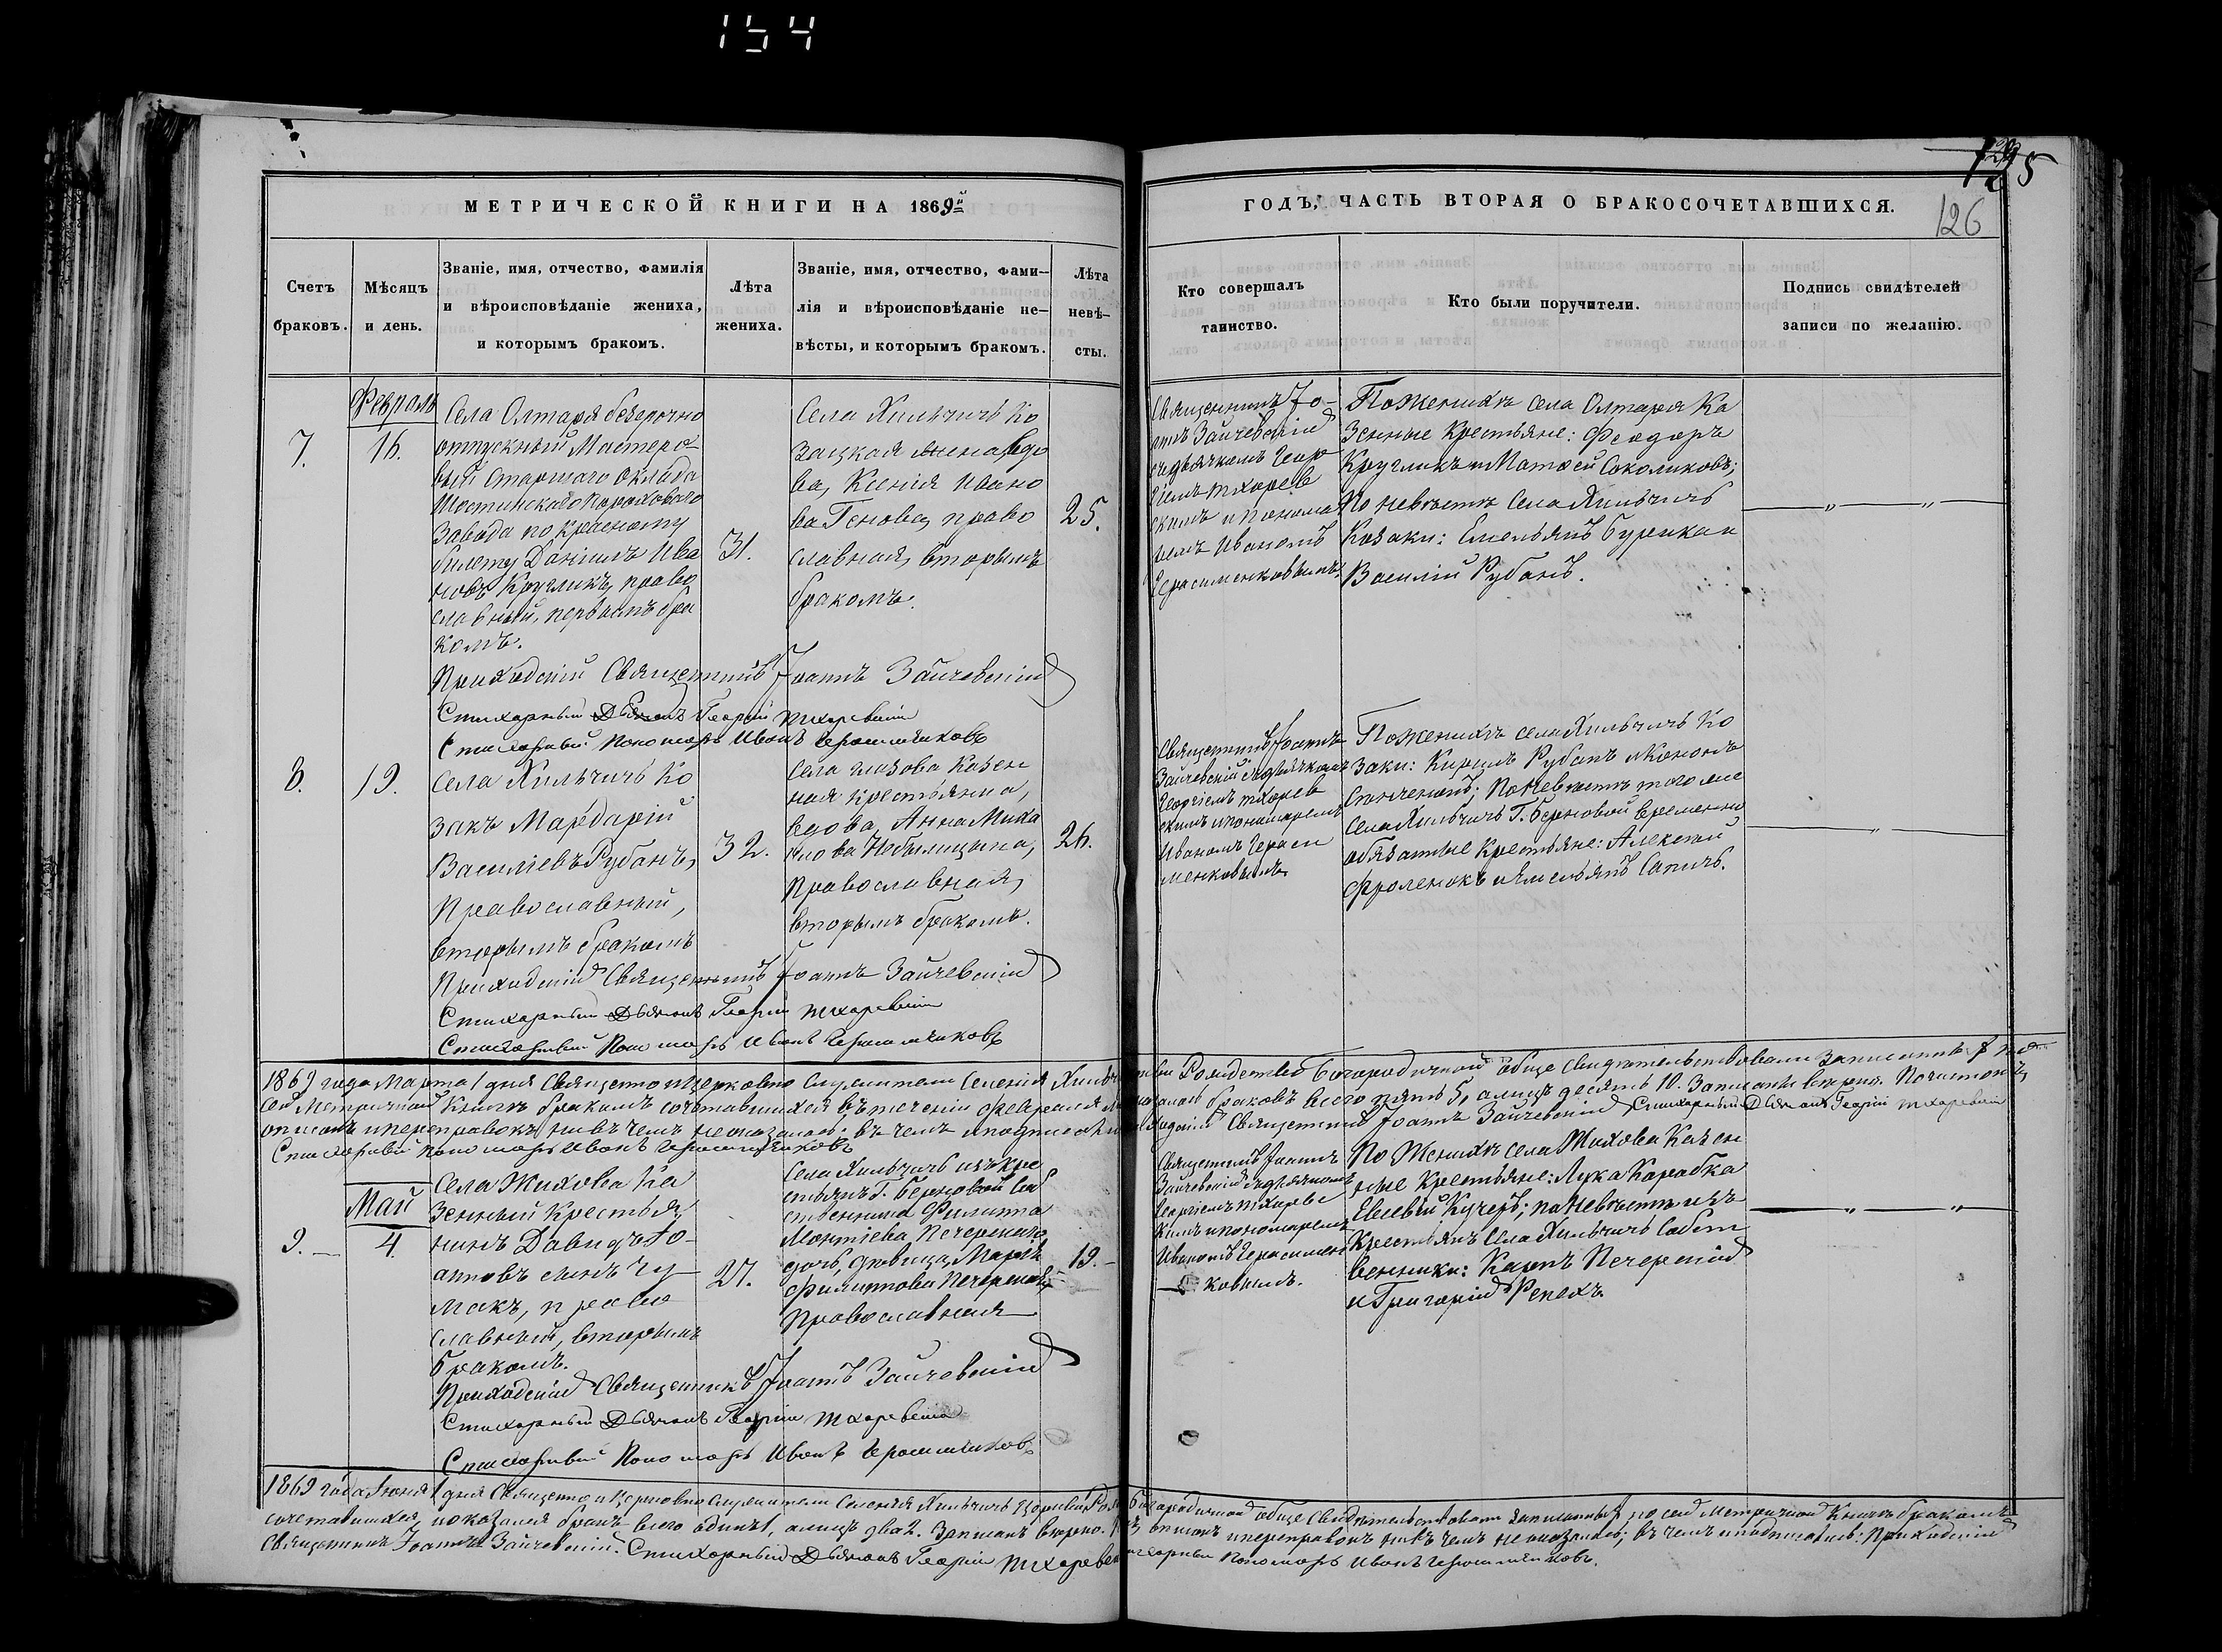 154
125
126
МЕТРИЧЕСКОЙ КНИГИ НА 1869й
ГОДЪ, ЧАСТЬ ВТОРАЯ О БРАКОСОЧЕТАВШИХСЯ.
Счетъ
браковъ.
Мѣсяцъ
и день.
Званіе, имя, отчество, фамилія
и вѣроисповѣданіе жениха,
и которымъ бракомъ.
Лѣта
жениха.
Званіе, имя, отчество, фами-
лія и вѣроисповѣданіе не-
вѣсты, и которымъ бракомъ.
Лѣта
невѣ-
сты.
Кто совершалъ
таинство.
Кто были поручители.
Подпись свидѣтелей
записи по желанію.
7.
Февраль
16.
Села Олтаря безсрочно
отпускный Мастеро
вый Старшаго Оклада
Шостинскаго Пороховаго
Завода по Красному
билету Даніилъ Ива
новъ Кругликъ, право
славный, первымъ бра
комъ.
31.
Села Хильчичь Ко
зацкая жена вдо
ва, Ксенія Ивано
ва, право
славная, вторымъ
бракомъ.
25.
Священникъ Іо-
аннъ Зайчевскій
съ дьячкомъ Геор
гіемъ Тхорев
скимъ и понома
ремъ Иваномъ
Герасименковымъ
По Женихѣ села Олтаря Ка
зенные Крестьяне: Феодоръ
Кругликъ и Матѳей Соколиковъ;
По невѣстѣ Села Хильчичь
Козаки: Емельянъ Бурикан
Василій Рубанъ.
Приходскій Священникъ Іоаннъ Зайчевскій
Стихарный Дьячокъ Георгій Тхоревскій
Стихарный Пономарь Иванъ Герасименковъ
8.
19.
Села Хильчичь Ко
закъ Мардарій
Василіевъ Рубанъ,
Православный,
вторымъ бракомъ
32.
Села Глазова Казен
ная крестьянка,
вдова, Анна Миха
илова Небылицына,
Православная,
вторымъ бракомъ.
26.
Священникъ Іоаннъ
Зайчевскій съ дьячкомъ
Георгіемъ Тхорев
скимъ и пономаремъ
Иваномъ Гераси
менковымъ
По Женихѣ села Хильчичь Ко
заки: Кирилъ Рубанъ и Кононъ
По Невѣстѣ того же
Села Хильчичь Г. Берновой временно
обязанные Крестьяне: Алексѣй
Фроленокъ и Емельянъ Сапичь.
Приходскій Священникъ Іоаннъ Зайчевскій
Стихарный Дьячокъ Георгій Тхоревскій
Стихарный Пономарь Иванъ Герасименковъ
1869 года Марта 1 дня Священно и Церковно Служители Селенія Хильчичь Рождество Богородичной обще Свидѣтельствовали записанныхъ по
сей Метричной Книгѣ бракомъ сочетавшихся въ теченіи Февраля браковъ всего пять 5, а лицъ десять 10. Записаны вѣрно.
описокъ и переправокъ ни въ чемъ не оказалось: въ чемъ и подписались Приходскій Священникъ Іоаннъ Зайчевскій Стихарный Дьячокъ Георгій Тхоревскій
Стихарный пономарь Иванъ Герасименковъ
9.
Май
4.
Села Жихова Ка
зенный Крестья
нинъ Давидъ Іо-
анновъ сынъ Чу
макъ, право
славный, вторымъ
бракомъ.
27.
Села Хильчичь изъ кре
стьянъ Г. Берновой соб
ственника Филиппа
Леонтіева Печерскаго
дочь, дѣвица, Марѳа
Филиппова Печерская,
Православная
19.
Священникъ Іоаннъ
Зайчевскій съ дьячкомъ
Георгіемъ Тхоревс
кимъ и пономаремъ
Иваномъ Герасимен
ковымъ.
По Женихѣ села Жихова Казен
ные Крестьяне: Лука Карабка
Евсевій Кучеръ; по Невѣстѣ изъ
Крестьянъ Села Хильчичь Собст
венники: Карпъ Печерскій
и Григорій Репехъ.
Приходскій Священникъ Іоаннъ Зайчевскій
Стихарный Дьячокъ Георгій Тхоревскій
Стихарный Пономарь Иванъ Герасименковъ
1869 года Іюня 1 дня Священно и Церковно Служители Селенія Хильчичь Церкви Рождество Богородичной обще Свидѣтельствовали записанныхъ по сей Метричной Книгѣ бракомъ
сочетавшихся, показался бракъ всего одинъ 1, а лицъ два 2. Записанъ вѣрно. описокъ и переправокъ ни въ чемъ не оказалось; въ чемъ и подписались: Приходскій
Священникъ Іоаннъ Зайчевскій. Стихарный Дьячокъ Георгій Тхоревскій Стихарный Пономарь Иванъ Герасименковъ.